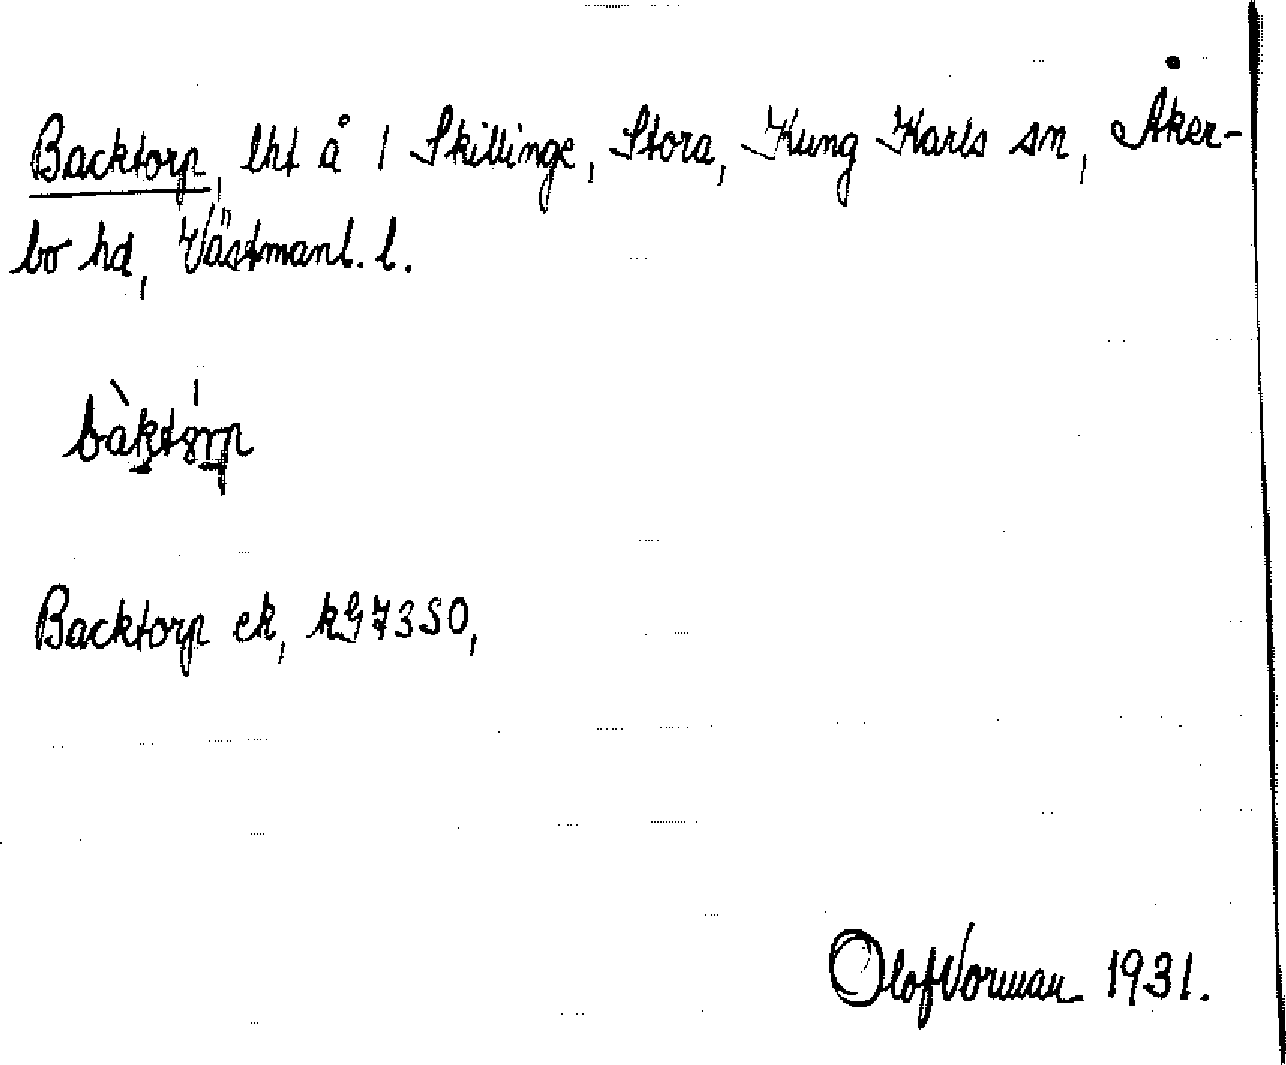 Backtorp, lht å 1 Skillinge, Stora, Kung Karls sn, Åker-
bo hd, Västmanl. l.
Backtorp ek, kG 73 SO,
Olof Vorman 1931.